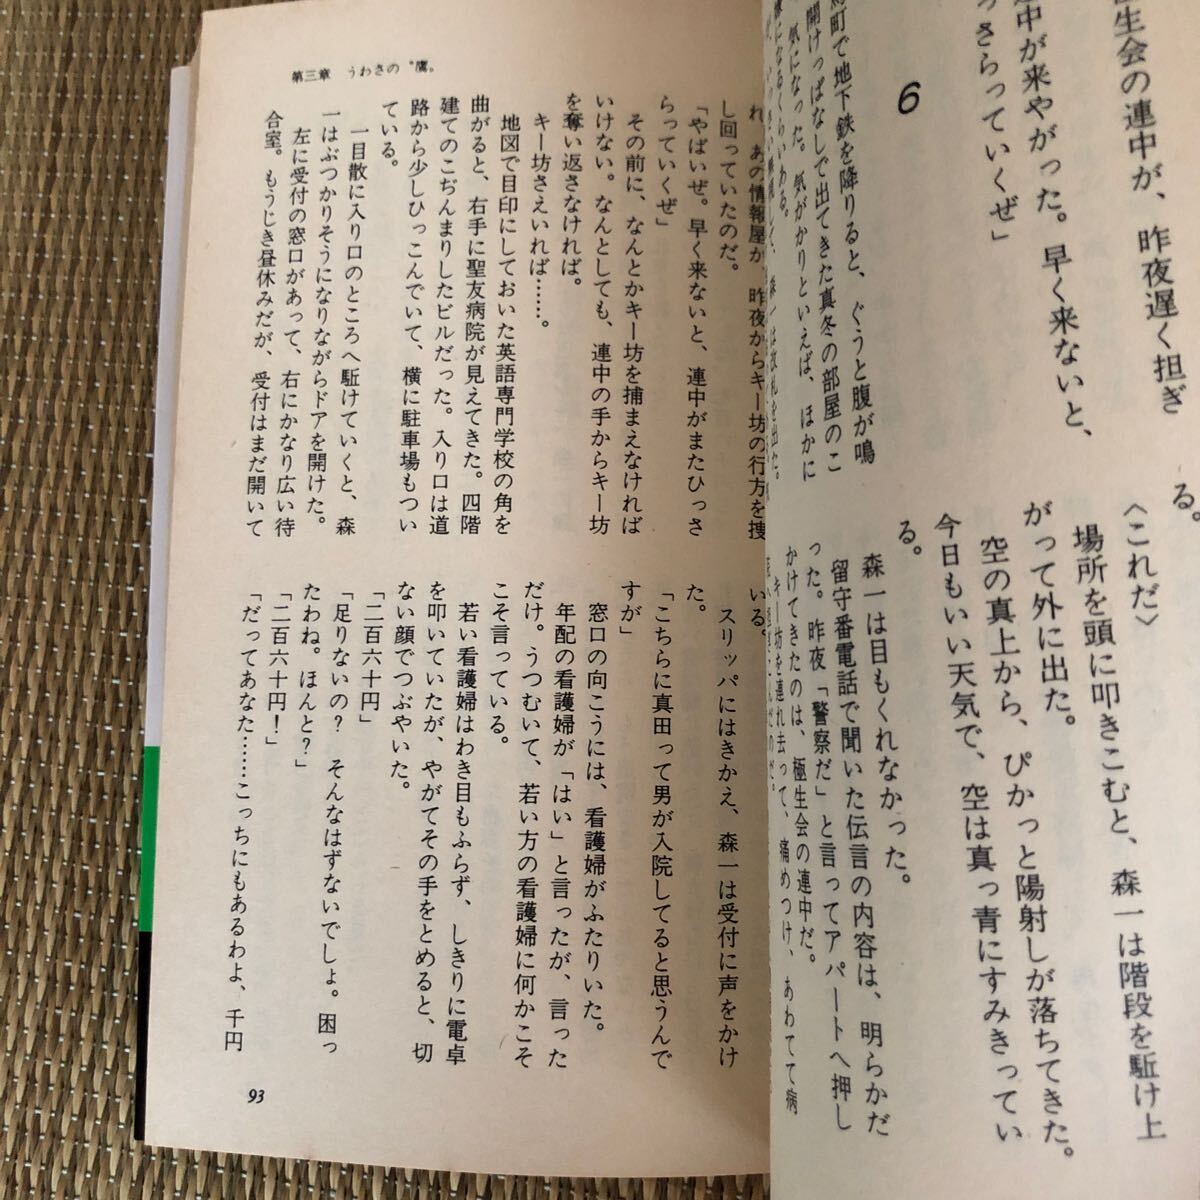 生会の連中が、昨夜遅く担ぎ
連中が来やがった。早く来ないと、
っさらっていくぜ」
6
町で地下鉄を降りると、ぐうと腹が鳴
開けっぱなしで出てきた真冬の部屋のこ
気になった。気がかりといえば、ほかに
になるくらいある。
森一は改札を出た。
る。
〈これだ〉
場所を頭に叩きこむと、森一は階段を駈け上
がって外に出た。
空の真上から、ぴかっと陽射しが落ちてきた。
今日もいい天気で、空は真っ青にすみきってい
る。
森一は目もくれなかった。
留守番電話で聞いた伝言の内容は、明らかだ
った。昨夜「警察だ」と言ってアパートへ押し
かけてきたのは、極生会の連中だ。
キー坊を連れ去って、痛めつけ、あわてて病
第三章　うわさの〝鷹〟
れ、あの情報屋が、昨夜からキー坊の行方を捜
し回っていたのだ。
「やばいぜ。早く来ないと、連中がまたひっさ
らっていくぜ」
その前に、なんとかキー坊を捕まえなければ
いけない。なんとしても、連中の手からキー坊
を奪い返さなければ。
キー坊さえいれば……。
地図で目印にしておいた英語専門学校の角を
曲がると、右手に聖友病院が見えてきた。四階
建てのこぢんまりしたビルだった。入り口は道
路から少しひっこんでいて、横に駐車場もつい
ている。
一目散に入り口のところへ駈けていくと、森
一はぶつかりそうになりながらドアを開けた。
左に受付の窓口があって、右にかなり広い待
合室。もうじき昼休みだが、受付はまだ開いて
いる。
スリッパにはきかえ、森一は受付に声をかけ
た。
「こちらに真田って男が入院してると思うんで
すが」
窓口の向こうには、看護婦がふたりいた。
年配の看護婦が「はい」と言ったが、言った
だけ。うつむいて、若い方の看護婦に何かこそ
こそ言っている。
若い看護婦はわき目もふらず、しきりに電卓
を叩いていたが、やがてその手をとめると、切
ない顔でつぶやいた。
「二百六十円」
「足りないの？　そんなはずないでしょ。困っ
たわね。ほんと？」
「二百六十円！」
「だってあなた……こっちにもあるわよ、千円
93